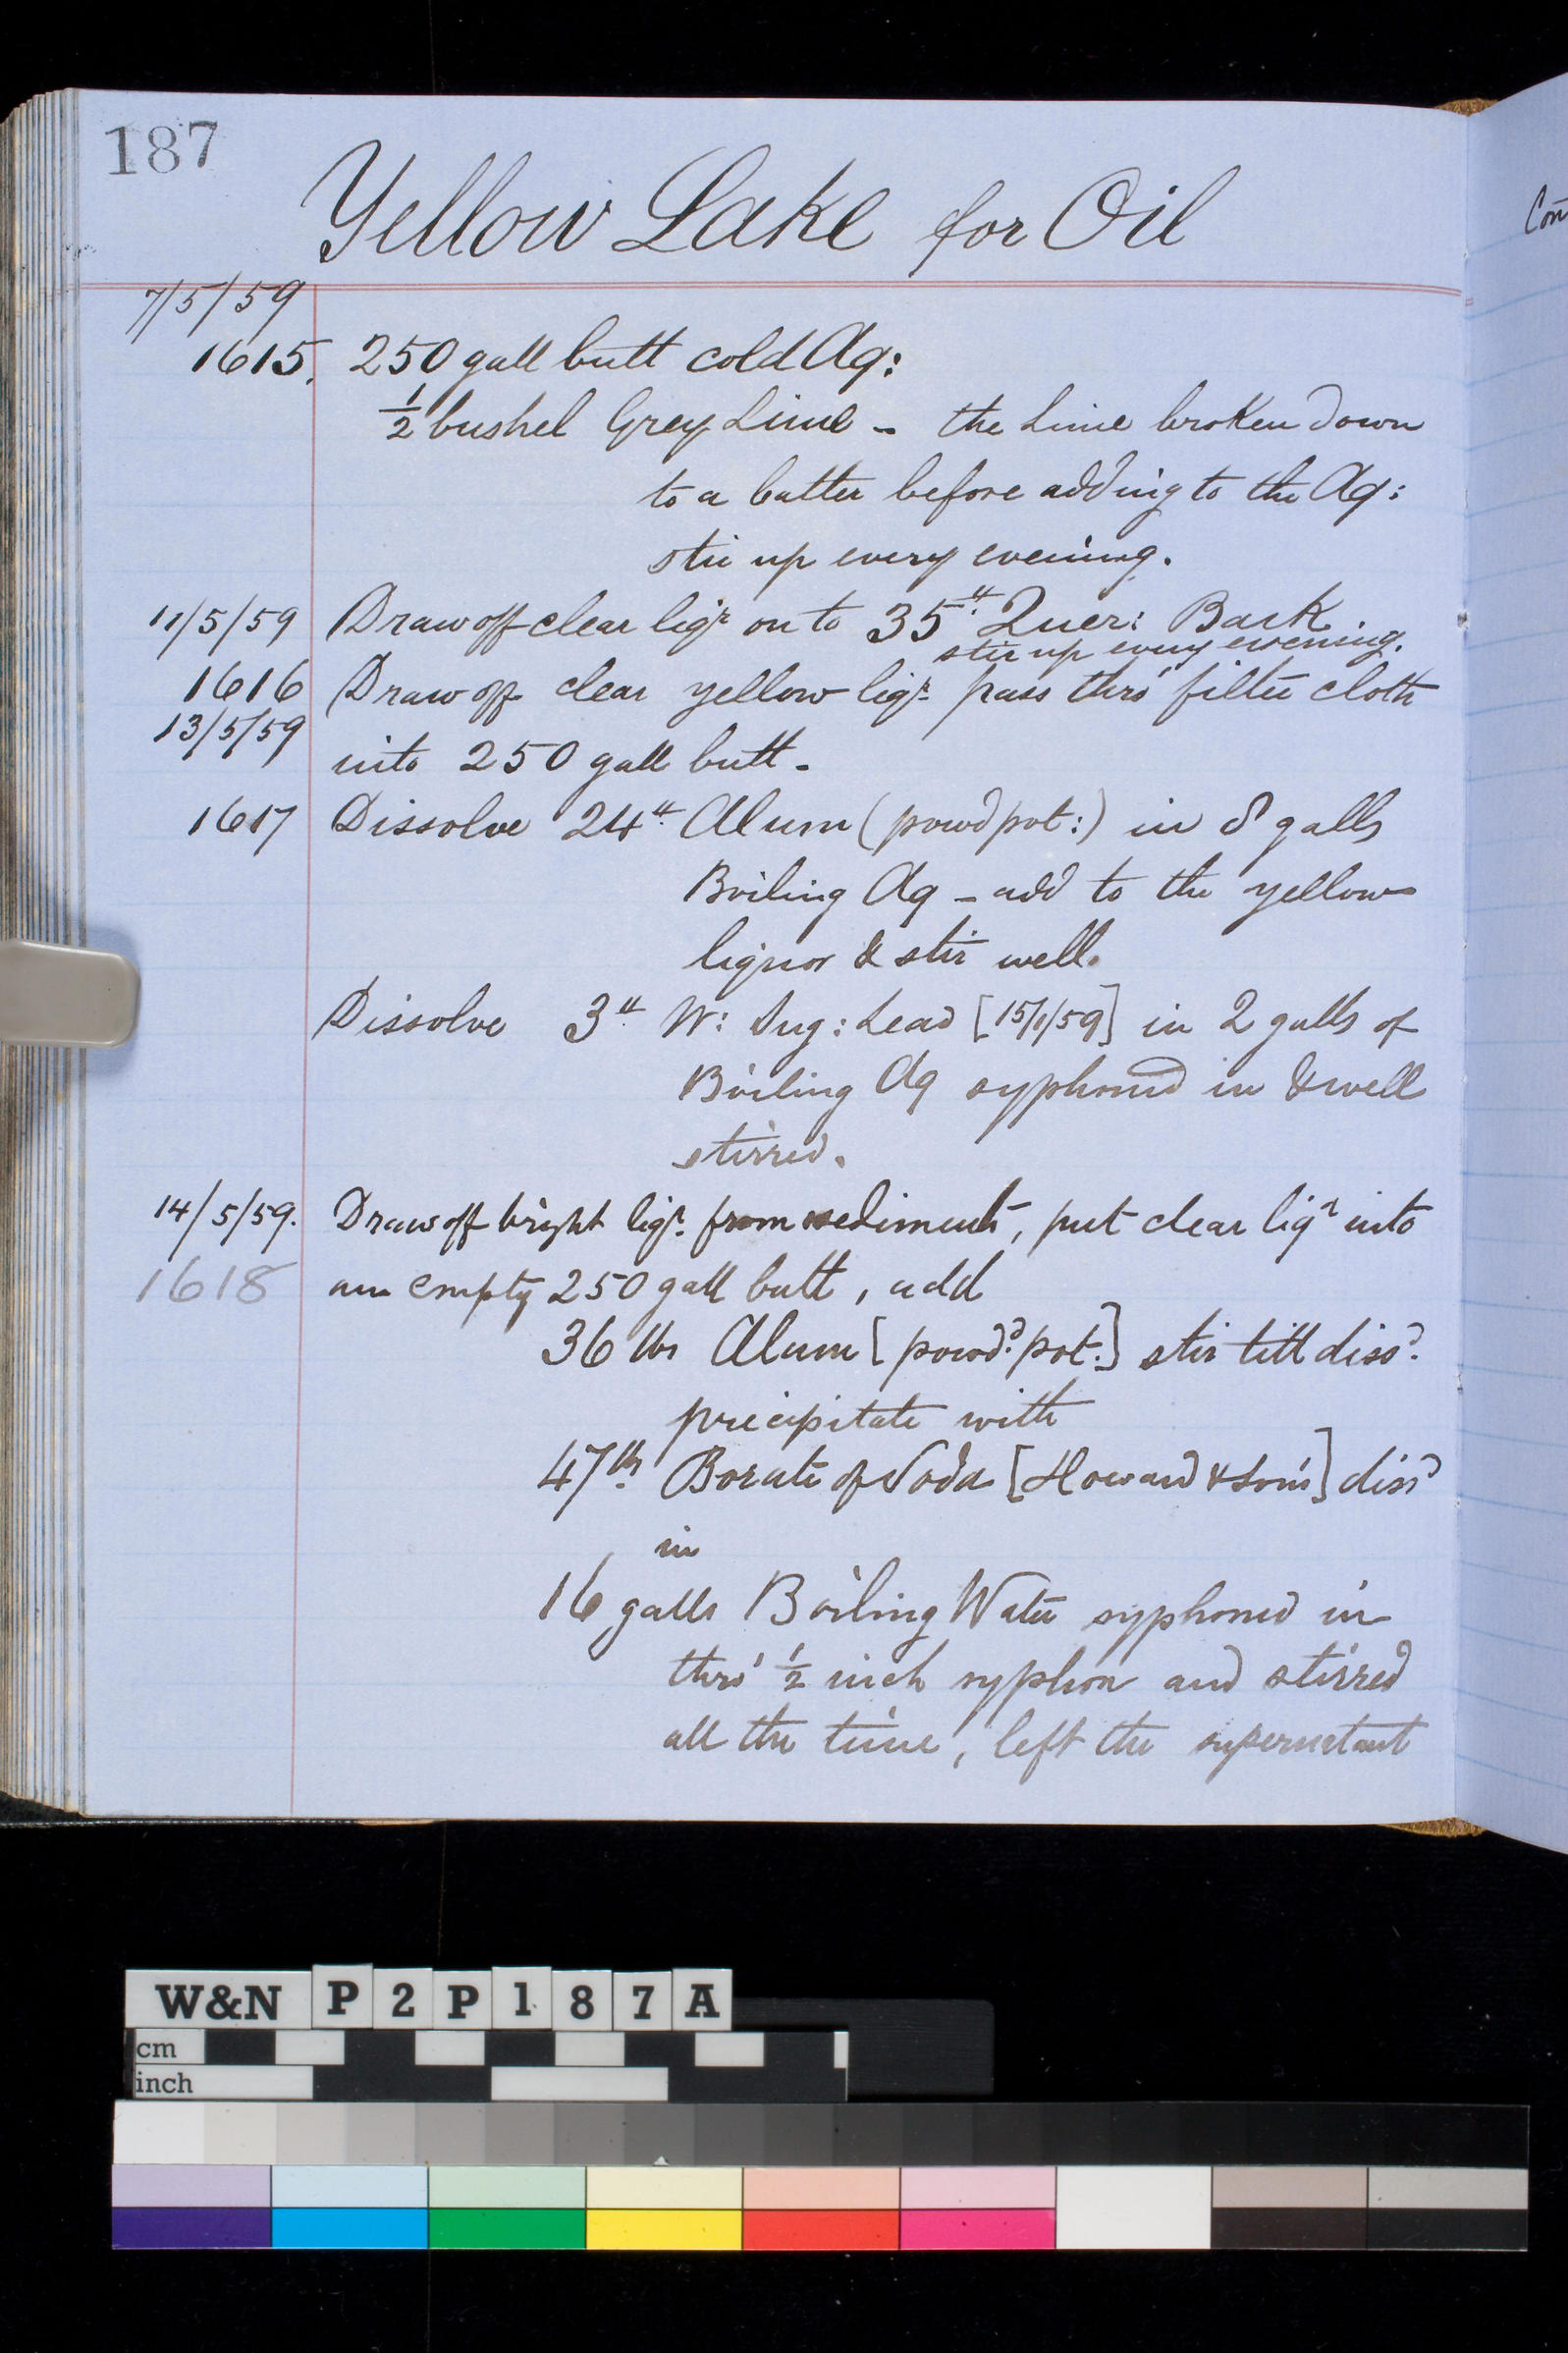 187
Yellow Lake for Oil
Con
7/5/59
1615. 250 gall butt cold Aq:
½ bushel Grey Lime - the Lime broken down
to a batter before adding to the Aq:
stir up every evening.
11/5/59 Draw off clear liqr. on to 35 lb. Quer: Bark
stir up every evening.
1616 Draw off clear yellow liqr. pass thro' filter cloth
13/5/59
into 250 gall butt -
1617 Dissolve 24 lb. Alum (powd pot:) in 8 galls
Boiling Aq - add to the yellow
liquor & stir well.
Dissolve 3 lb. W: Sug: Lead [15/1/59] in 2 galls of
Boiling Aq syphoned in & well
stirred.
14/5/59. Draw off bright liqr. from sediment, put clear liqr into
1618 an empty 250 gall butt, add
36 lbs Alum [powd.d pot.] stir till dissd.
precipitate with
47 lb. Borate of Soda [Howard & Sons] dissd
in
16 galls Boiling Water syphoned in
thro' ½ inch syphon and stirred
all the time, left the supernatant
W&N P2P187A
cm
inch